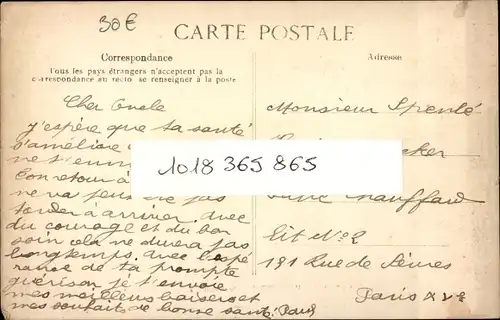 30€
CARTE POSTALE
Correspondance
Tous les pays étrangers n'acceptent pas la
correspondance au recto se renseigner à la poste
Adresse
Cher Oncle
j'espère que ta santé
s'améliore
ne t'enn
retour à
ne va pas
tarder à arriver. avec
du courage et du bon
soin cela ne durera pas
longtemps. Avec l'espé
rance de ta prompte
guérison je t'envoie
mes meilleurs baisers et
mes souhaits de bonne santé. Paul
1018 365 865
Monsieur Spenlé
cker
Chauffard
Lit No 2
191 Rue de Sèvres
Paris XVe